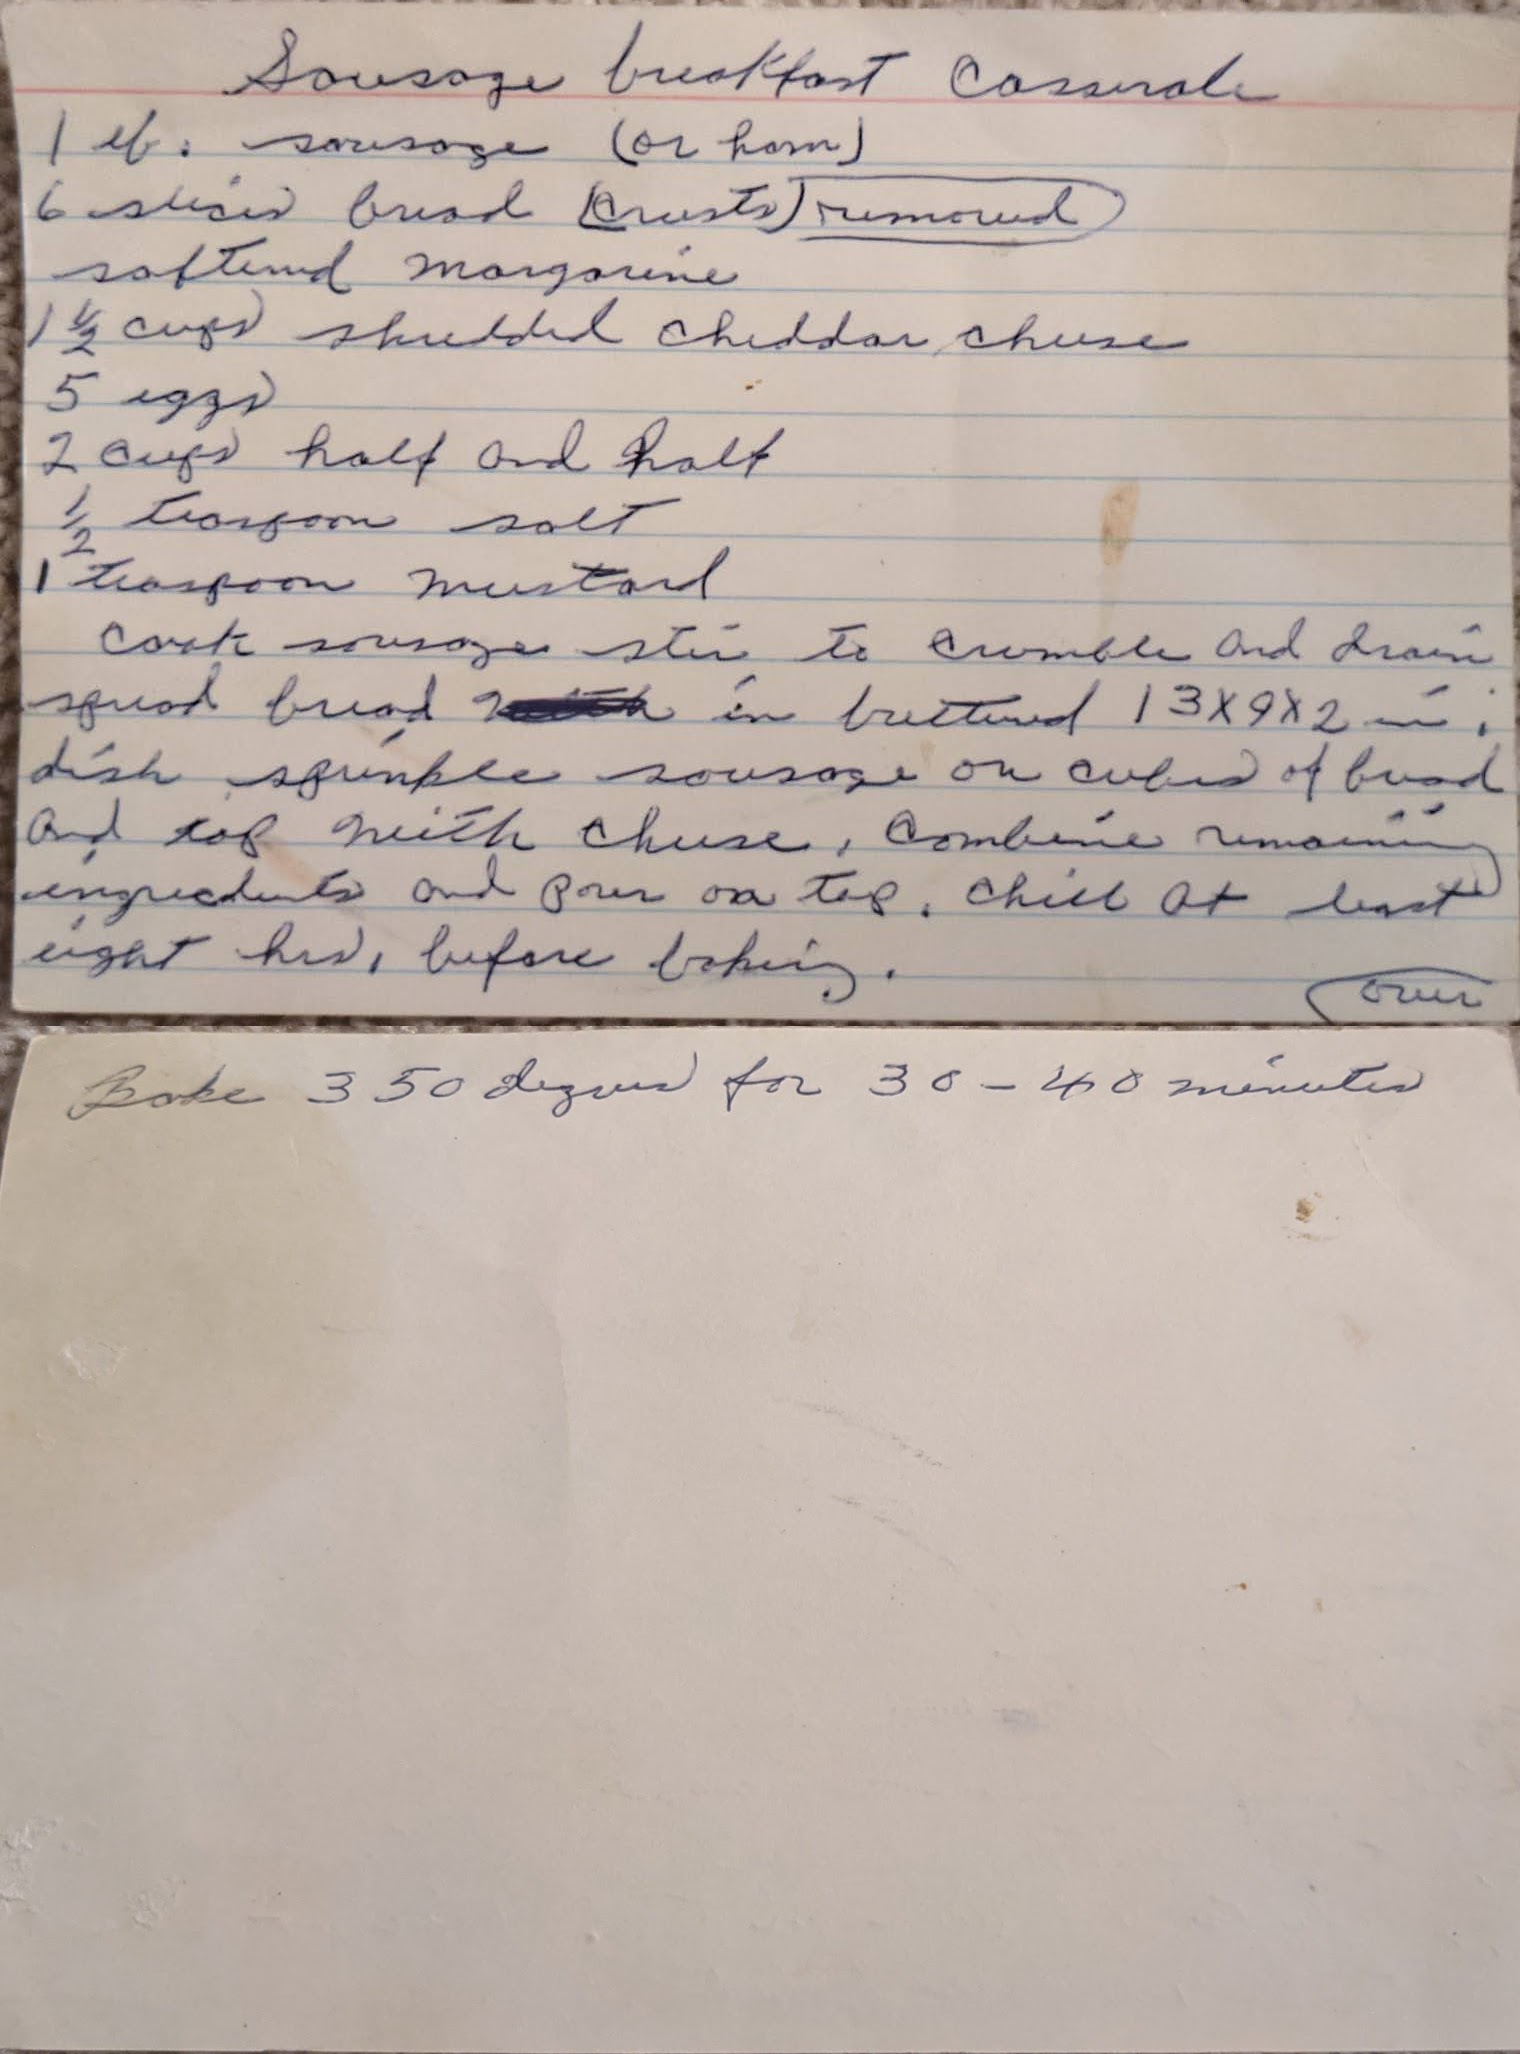 Sausage breakfast Casserole
1 lb. sausage (or ham)
6 slices bread (crusts) removed
softened margarine
1 1/2 cups shredded cheddar cheese
5 eggs
2 cups half and half
1/2 teaspoon salt
1 teaspoon mustard
Cook sausage stir to crumble and drain
spread bread in buttered 13X9X2 in.
dish sprinkle sausage on cubes of bread
and top with cheese. Combine remaining
ingredients and pour on top. Chill at least
eight hrs. before baking.
over
Bake 350 degrees for 30-40 minutes